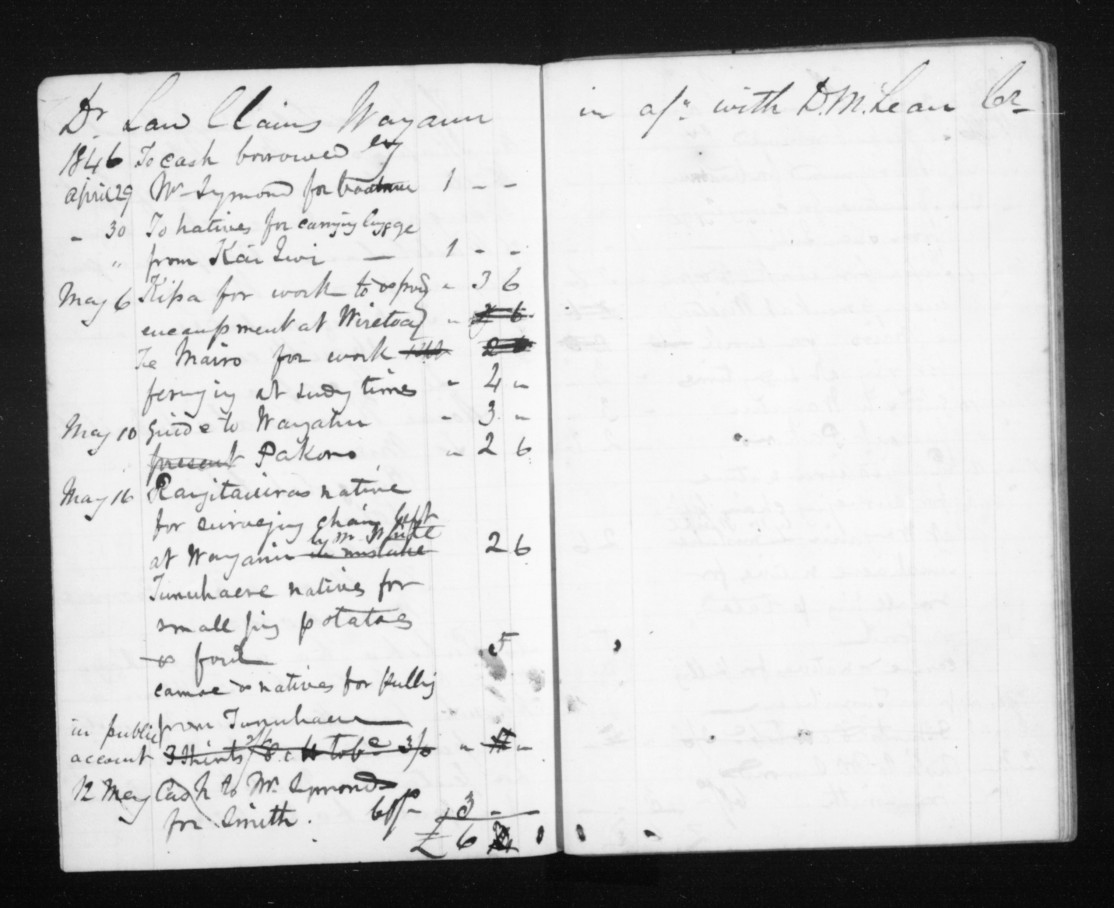 Dr Land Claims Wanganui in a/c with D. McLean Cr
1846 To cash borrowed by
April 29 Mr Symond for 1 - -
" 30 To natives for carrying luggage
" from Kai Iwi — 1 - -
May 6 Kipa for work to & from " 3 6
encampment at Wiretoa " 2 6
Te Mairo for work 2
ferrying at sundry times " 4 "
May 10 Guide to Wangahu " 3 "
present Pakoro " 2 6
May 16 Rangitauiras native
for surveying chain left
by Mr White
at Wanganui in mistake 2 6
Tunuhaere natives for
small pig potatoes
& fowl 5
canoe & natives for pulling
from Tunuhaere
in public
account 3 Shirts 3/6 " "
12 May Cash to Mr Symonds
for Smith. 3 -
£ 6